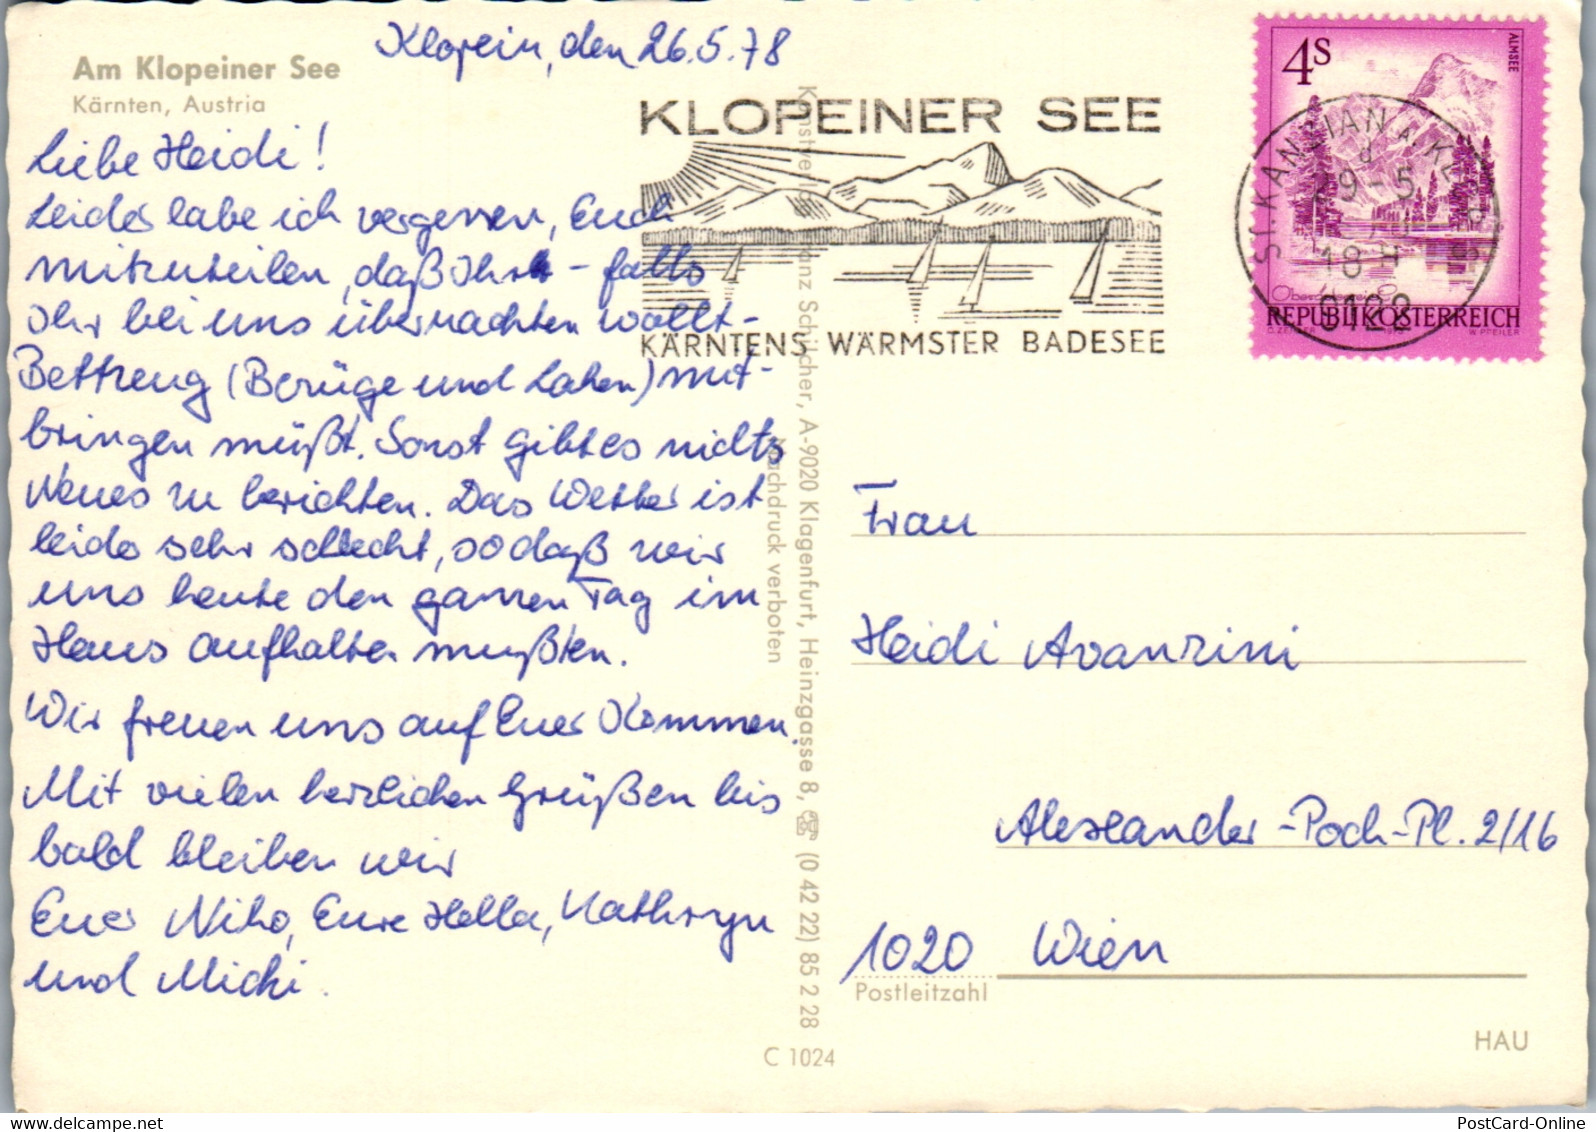 Am Klopeiner See
Kärnten, Austria
Klopein, den 26.5.78
Liebe Heidi!
Leider habe ich vergessen, Euch
mitzuteilen, daß Ihr - falls
Ihr bei uns übernachten wollt -
Bettzeug (Bezüge und Laken) mit-
bringen müßt. Sonst gibt es nichts
Neues zu berichten. Das Wetter ist
leider sehr schlecht, so daß wir
uns heute den ganzen Tag im
Haus aufhalten mußten.
Wir freuen uns auf Euer Kommen.
Mit vielen herzlichen Grüßen bis
bald bleiben wir
Euer Niko, Eure Hella, Kathryn
und Michi.
KLOPEINER SEE
KÄRNTENS WÄRMSTER BADESEE
4S
ALMSEE
REPUBLIK ÖSTERREICH
W. PFEILER
ST. KANZIAN A. KLOP. SEE
29-5
18 H
9122
Kunstverlag Franz Schilcher, A-9020 Klagenfurt, Heinzgasse 8, ☎ (0 42 22) 85 2 28
Nachdruck verboten
Frau
Heidi Avanzini
Alexander-Poch-Pl. 2/16
1020 Wien
Postleitzahl
HAU
C 1024
PostCard-Online